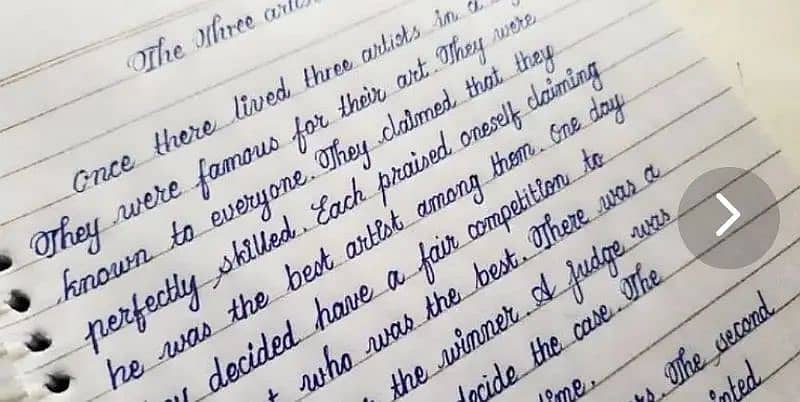 The Three
Once there lived three artists in a
They were famous for their art. They were
known to everyone. They claimed that they
perfectly skilled. Each praised oneself claiming
he was the best artist among them. One day
decided have a fair competition to
who was the best. There was a
the winner. A judge was
decide the case. The
The second